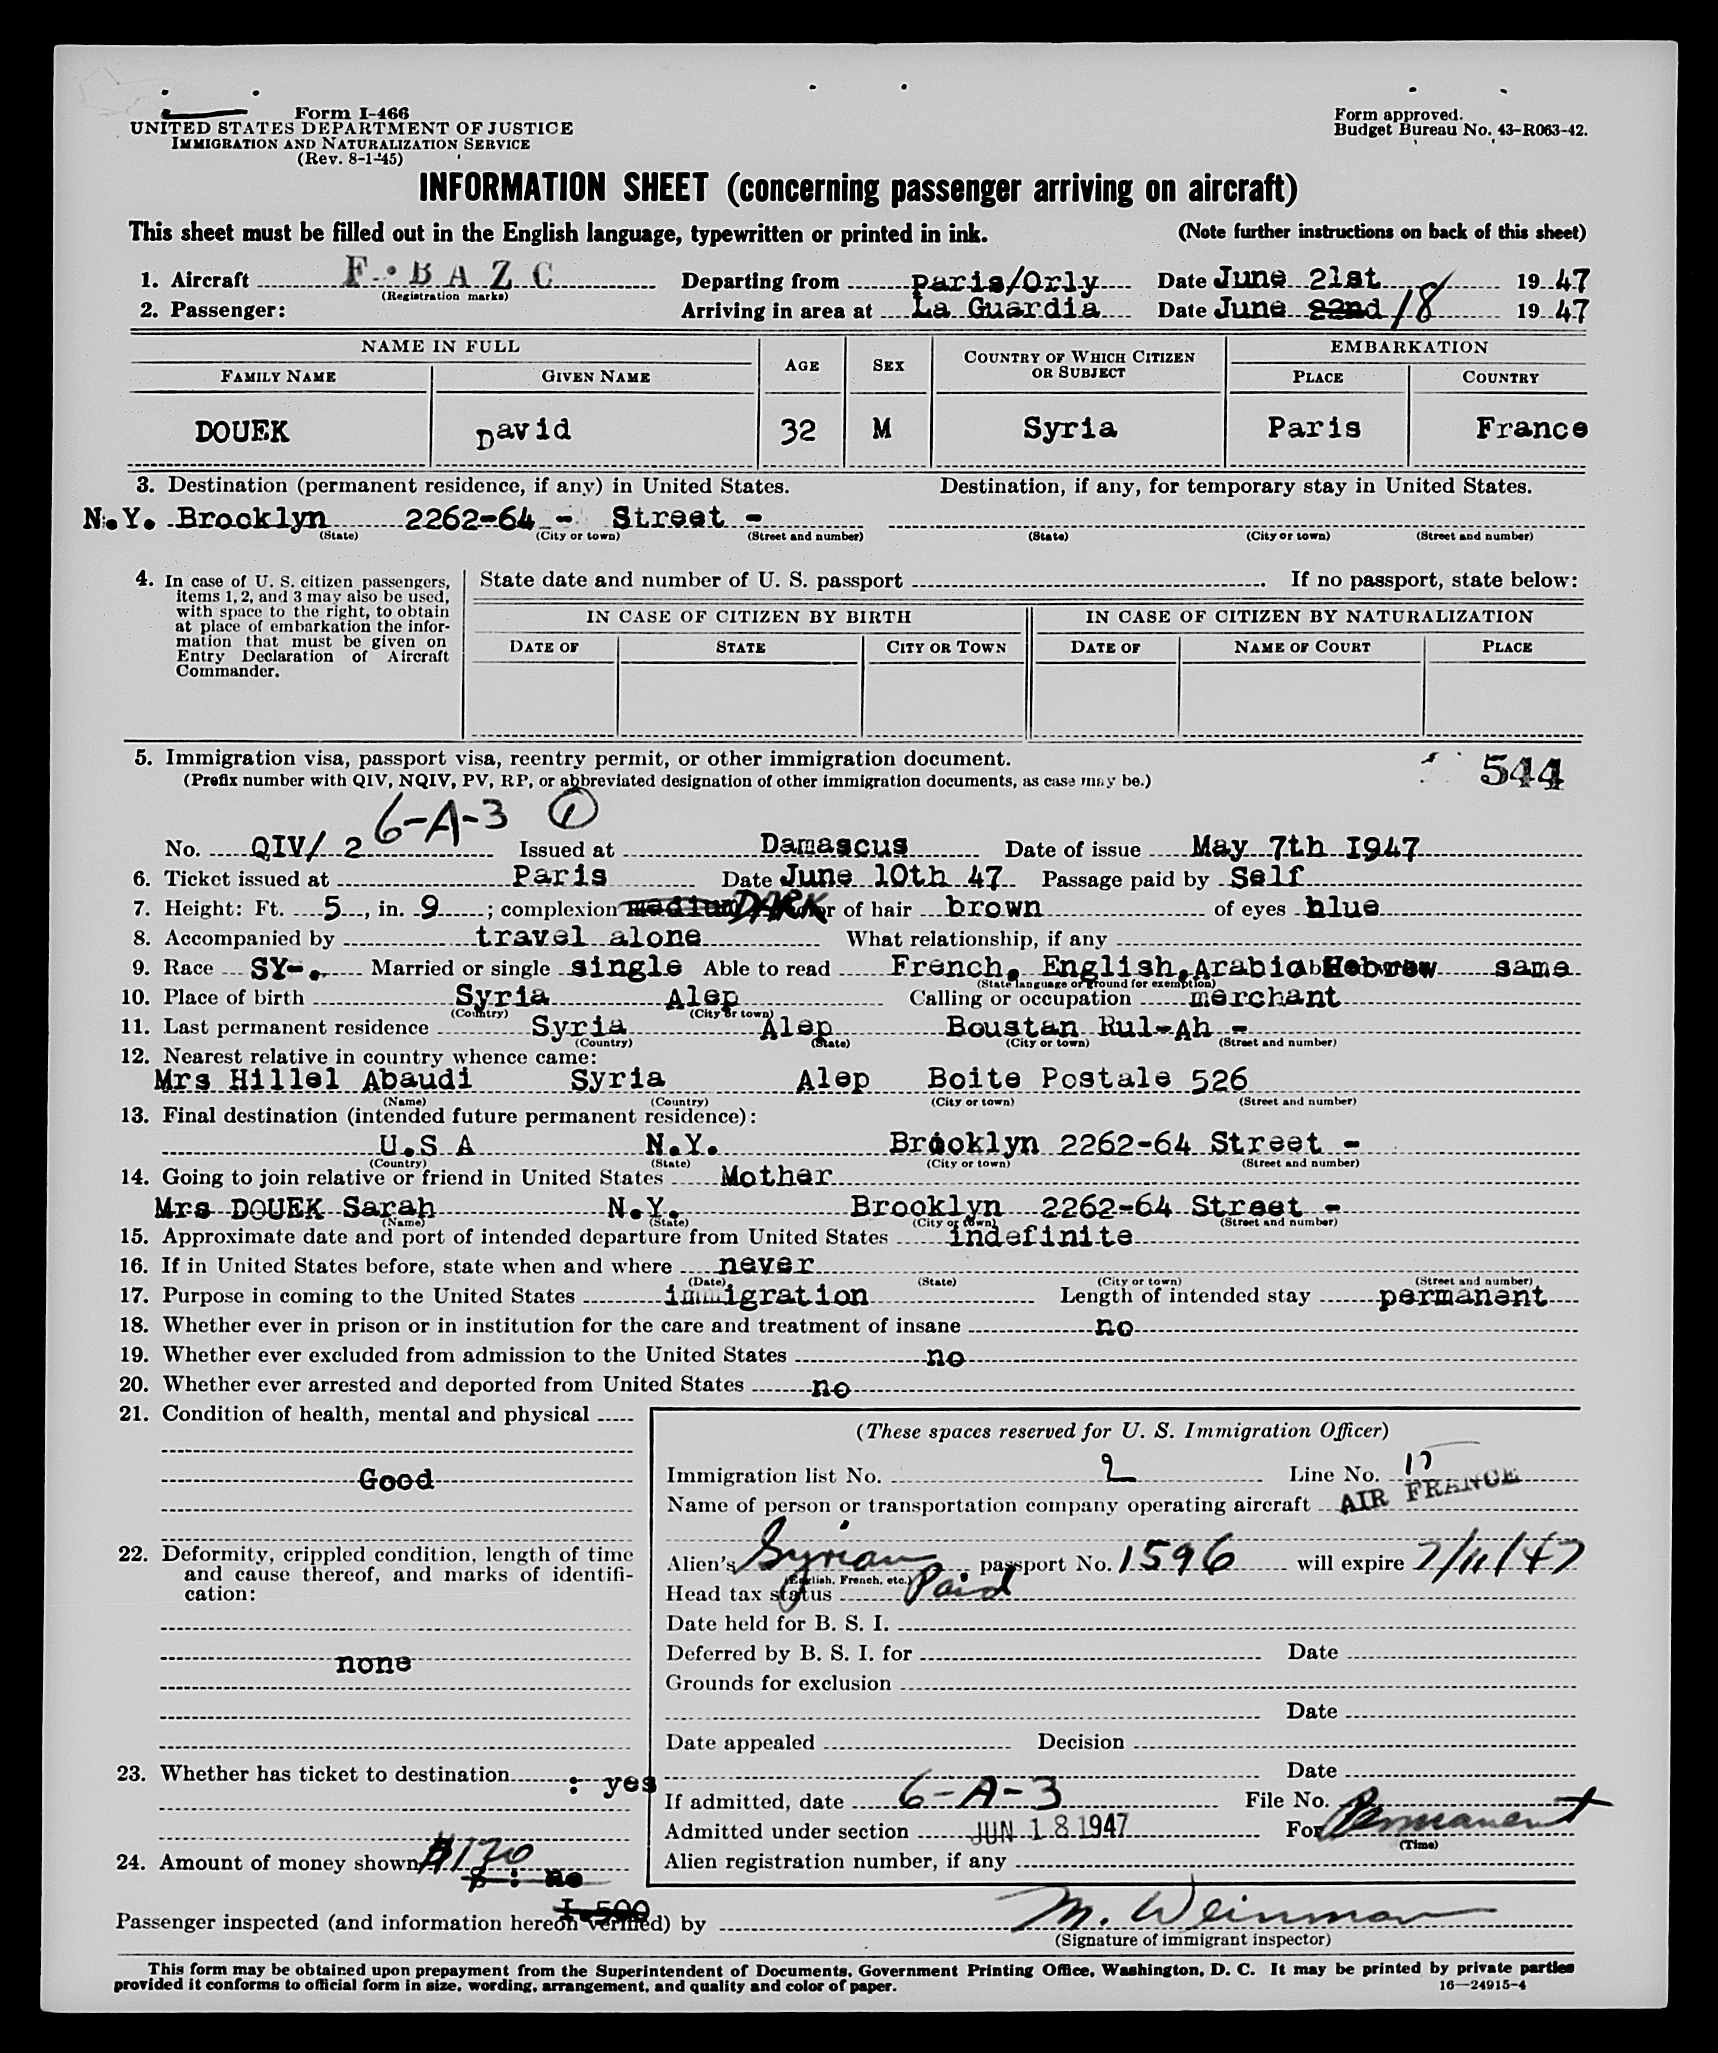 Form I-466
UNITED STATES DEPARTMENT OF JUSTICE
IMMIGRATION AND NATURALIZATION SERVICE
(Rev. 8-1-45)
Form approved.
Budget Bureau No. 43-R063-42.
INFORMATION SHEET (concerning passenger arriving on aircraft)
This sheet must be filled out in the English language, typewritten or printed in ink. (Note further instructions on back of this sheet)
1. Aircraft F-BAZC Departing from Paris/Orly Date June 21st 19 47
(Registration marks)
2. Passenger: Arriving in area at La Guardia Date June 22nd 18 19 47
NAME IN FULL AGE SEX COUNTRY OF WHICH CITIZEN OR SUBJECT EMBARKATION
FAMILY NAME GIVEN NAME PLACE COUNTRY
DOUEK David 32 M Syria Paris France
3. Destination (permanent residence, if any) in United States. Destination, if any, for temporary stay in United States.
N.Y. Brooklyn 2262-64 - Street -
(State) (City or town) (Street and number) (State) (City or town) (Street and number)
4. In case of U. S. citizen passengers, items 1, 2, and 3 may also be used, with space to the right, to obtain at place of embarkation the information that must be given on Entry Declaration of Aircraft Commander.
State date and number of U. S. passport . If no passport, state below:
IN CASE OF CITIZEN BY BIRTH IN CASE OF CITIZEN BY NATURALIZATION
DATE OF STATE CITY OR TOWN DATE OF NAME OF COURT PLACE
5. Immigration visa, passport visa, reentry permit, or other immigration document.
(Prefix number with QIV, NQIV, PV, RP, or abbreviated designation of other immigration documents, as case may be.)
544
6-A-3 1
No. QIV/ 2 Issued at Damascus Date of issue May 7th 1947
6. Ticket issued at Paris Date June 10th 47 Passage paid by Self
7. Height: Ft. 5, in. 9; complexion medium DARK color of hair brown of eyes blue
8. Accompanied by travel alone What relationship, if any
9. Race SY-. Married or single single Able to read French, English, Arabic Hebrew same
(State language or ground for exemption)
10. Place of birth Syria Alep Calling or occupation merchant
(Country) (City or town)
11. Last permanent residence Syria Alep Boustan Kul-Ah -
(Country) (State) (City or town) (Street and number)
12. Nearest relative in country whence came:
Mrs Hillel Abaudi Syria Alep Boite Postale 526
(Name) (Country) (City or town) (Street and number)
13. Final destination (intended future permanent residence):
U.S A N.Y. Brooklyn 2262-64 Street -
(Country) (State) (City or town) (Street and number)
14. Going to join relative or friend in United States Mother
Mrs DOUEK Sarah N.Y. Brooklyn 2262-64 Street -
(Name) (State) (City or town) (Street and number)
15. Approximate date and port of intended departure from United States indefinite
16. If in United States before, state when and where never
(Date) (State) (City or town) (Street and number)
17. Purpose in coming to the United States immigration Length of intended stay permanent
18. Whether ever in prison or in institution for the care and treatment of insane no
19. Whether ever excluded from admission to the United States no
20. Whether ever arrested and deported from United States no
21. Condition of health, mental and physical
Good
22. Deformity, crippled condition, length of time and cause thereof, and marks of identification:
none
23. Whether has ticket to destination : yes
24. Amount of money shown $170
$ : no
1.500
(These spaces reserved for U. S. Immigration Officer)
Immigration list No. 2 Line No. 17
Name of person or transportation company operating aircraft AIR FRANCE
Alien's Syrian passport No. 1596 will expire 7/11/47
(English, French, etc.)
Head tax status Paid
Date held for B. S. I.
Deferred by B. S. I. for Date
Grounds for exclusion
Date
Date appealed Decision
Date
If admitted, date 6-A-3 File No.
Admitted under section JUN 18 1947 For Permanent
(Time)
Alien registration number, if any
Passenger inspected (and information hereon verified) by M. Weinman
(Signature of immigrant inspector)
This form may be obtained upon prepayment from the Superintendent of Documents, Government Printing Office, Washington, D. C. It may be printed by private parties
provided it conforms to official form in size, wording, arrangement, and quality and color of paper. 16—24915-4